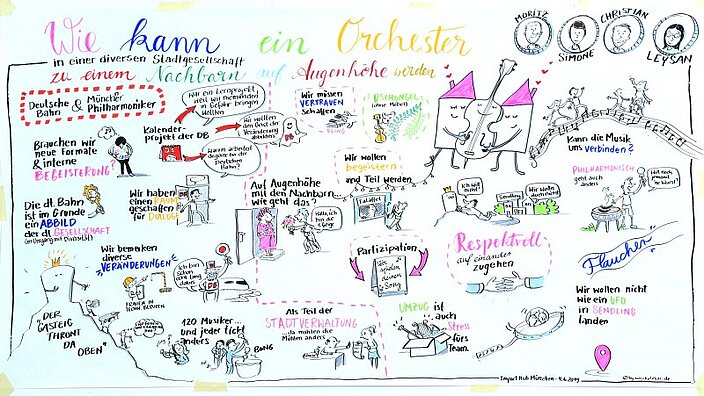 Wie kann ein Orchester
in einer diversen Stadtgesellschaft
zu einem Nachbarn auf Augenhöhe werden
MORITZ
SIMONE
CHRISTIAN
LEYSAN
Deutsche Bahn & Münchner Philharmoniker
Brauchen wir
neue Formate
& interne
BEGEISTERUNG?
Kalender-
projekt der DB
War ein Lernprojekt
weil wir niemanden
in Gefahr bringen
wollten
Wir wollten
den Geist der
Veränderung
Warum arbeitest
du
bei der
Deutschen
Bahn?
Die dt. Bahn
ist im Grunde
ein ABBILD
der dt. GESELLSCHAFT
(im Umgang mit Diversität)
Wir haben
einen RAUM
geschaffen
für DIALOGE
Wir bemerken
diverse
VERÄNDERUNGEN
FRAUEN IN
TECHN. BERUFEN
Ich bin
schon
ganz lang
dabei
DER
"GASTEIG
THRONT
DA
OBEN"
120 Musiker...
und jeder tickt
anders
BONG
Wir müssen
VERTRAUEN
schaffen
DSCHUNGEL
(ohne Mitten)
Wir wollen
begeistern
und Teil werden
Auf Augenhöhe
mit den Nachbarn...
wie geht das?
Hallo, ich
bin die
1. Geige
Falafel
Partizipation
Wir
spielen
deinen
Song
Als Teil der
STADTVERWALTUNG
...da mahlen die
Mühlen anders
UMZUG ist
auch
Stress
fürs
Team.
Ich will
nicht!
Sendling
Wir wollen
Respektvoll
auf einander
zugehen
Kann die Musik
uns verbinden?
PHILHARMONISCH
geht auch
anders
Hat noch
jemand
ne Wurst?
"Flaucher"
Wir wollen nicht
wie ein UFO
in SENDLING
landen
Impact Hub München - 9.6.2019